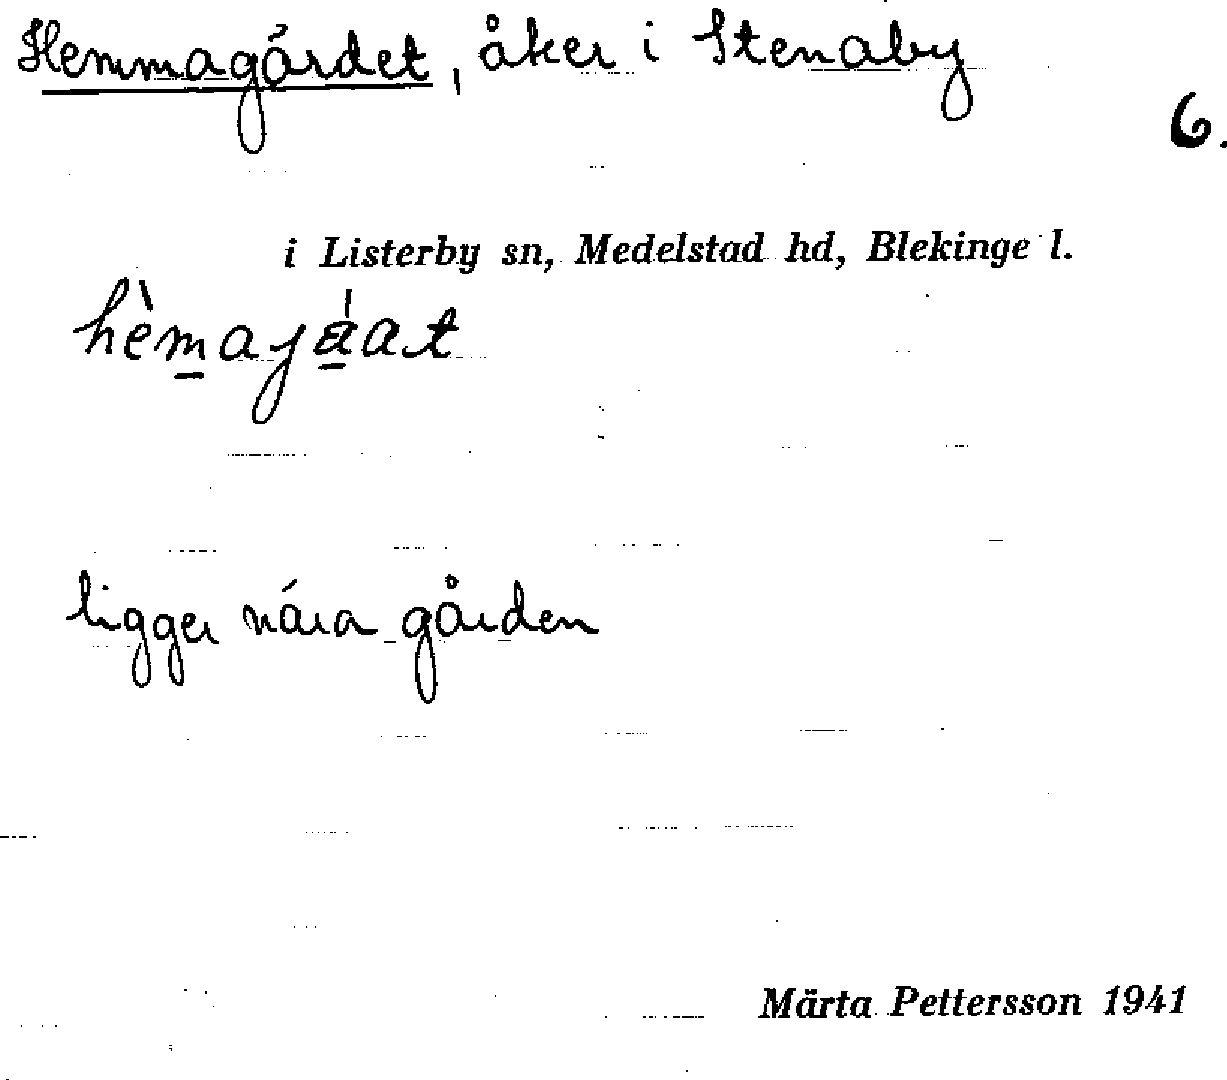 Hemmagärdet, åker i Stenaby
6.
i Listerby sn, Medelstad hd, Blekinge l.
ligger nära gården
Märta Pettersson 1941